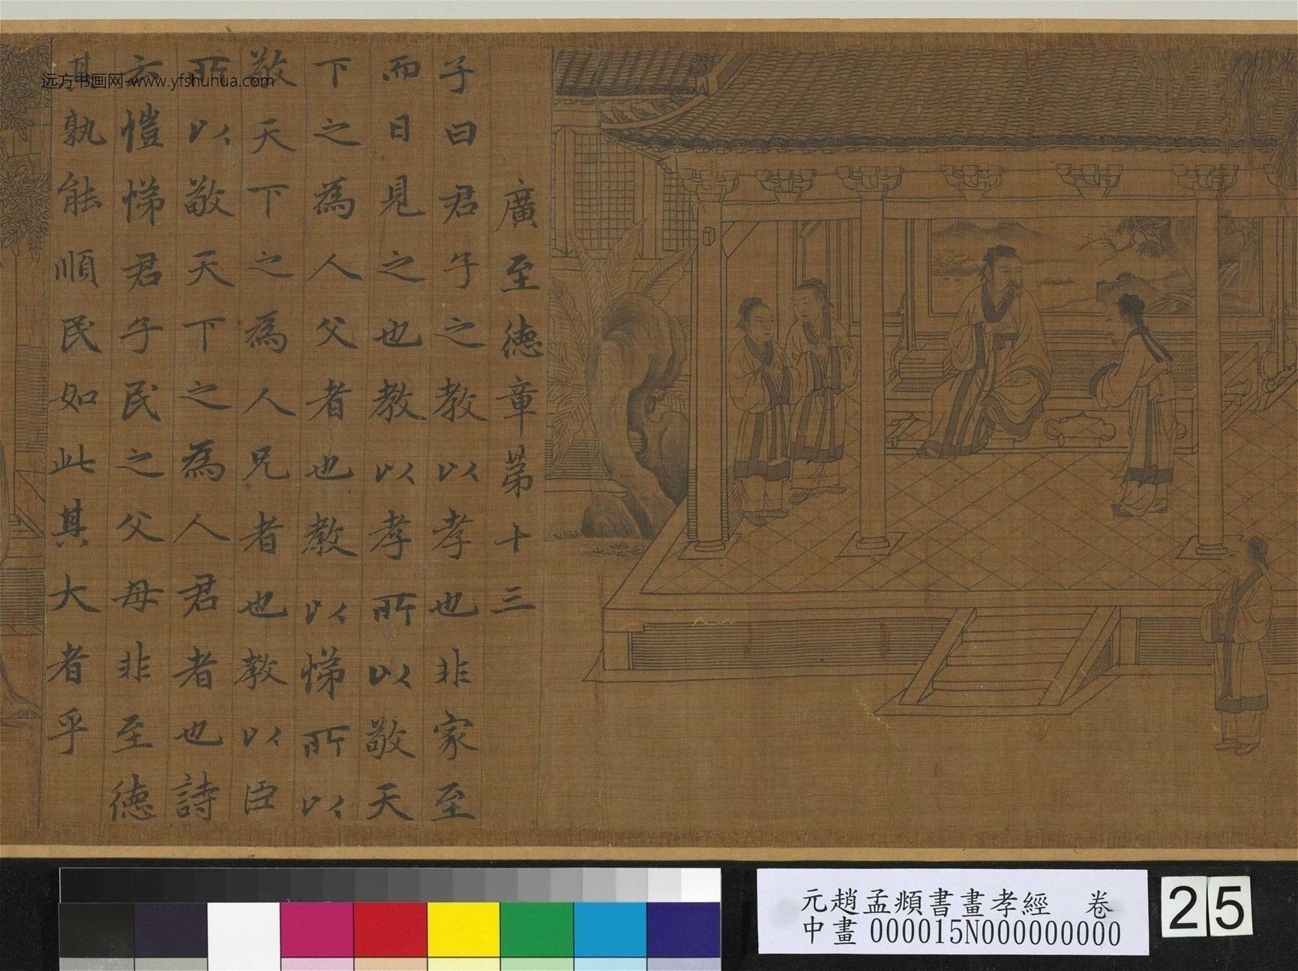 廣至徳章第十三
子曰君子之教以孝也非家至
而日見之也教以孝所以敬天
下之為人父者也教以悌所以
敬天下之為人兄者也教以臣
所以敬天下之為人君者也詩
云愷悌君子民之父母非至徳
其孰能順民如此其大者乎
远方书画网-www.yfshuhua.com
元趙孟頫書畫孝經 卷
中畫 000015N000000000
25